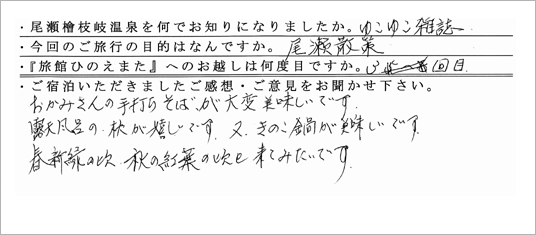 ・尾瀬檜枝岐温泉を何でお知りになりましたか。ゆこゆこ雑誌
・今回のご旅行の目的はなんですか。 尾瀬散策
・『旅館ひのえまた』へのお越しは何度目ですか。 回目
・ご宿泊いただきましたご感想・ご意見をお聞かせ下さい。
おかみさんの手打ちそばが大変美味しいです。
露天風呂の、枕が嬉しいです。又、きのこ鍋が美味しいです。
春新緑の頃、秋の紅葉の頃も来てみたいです。